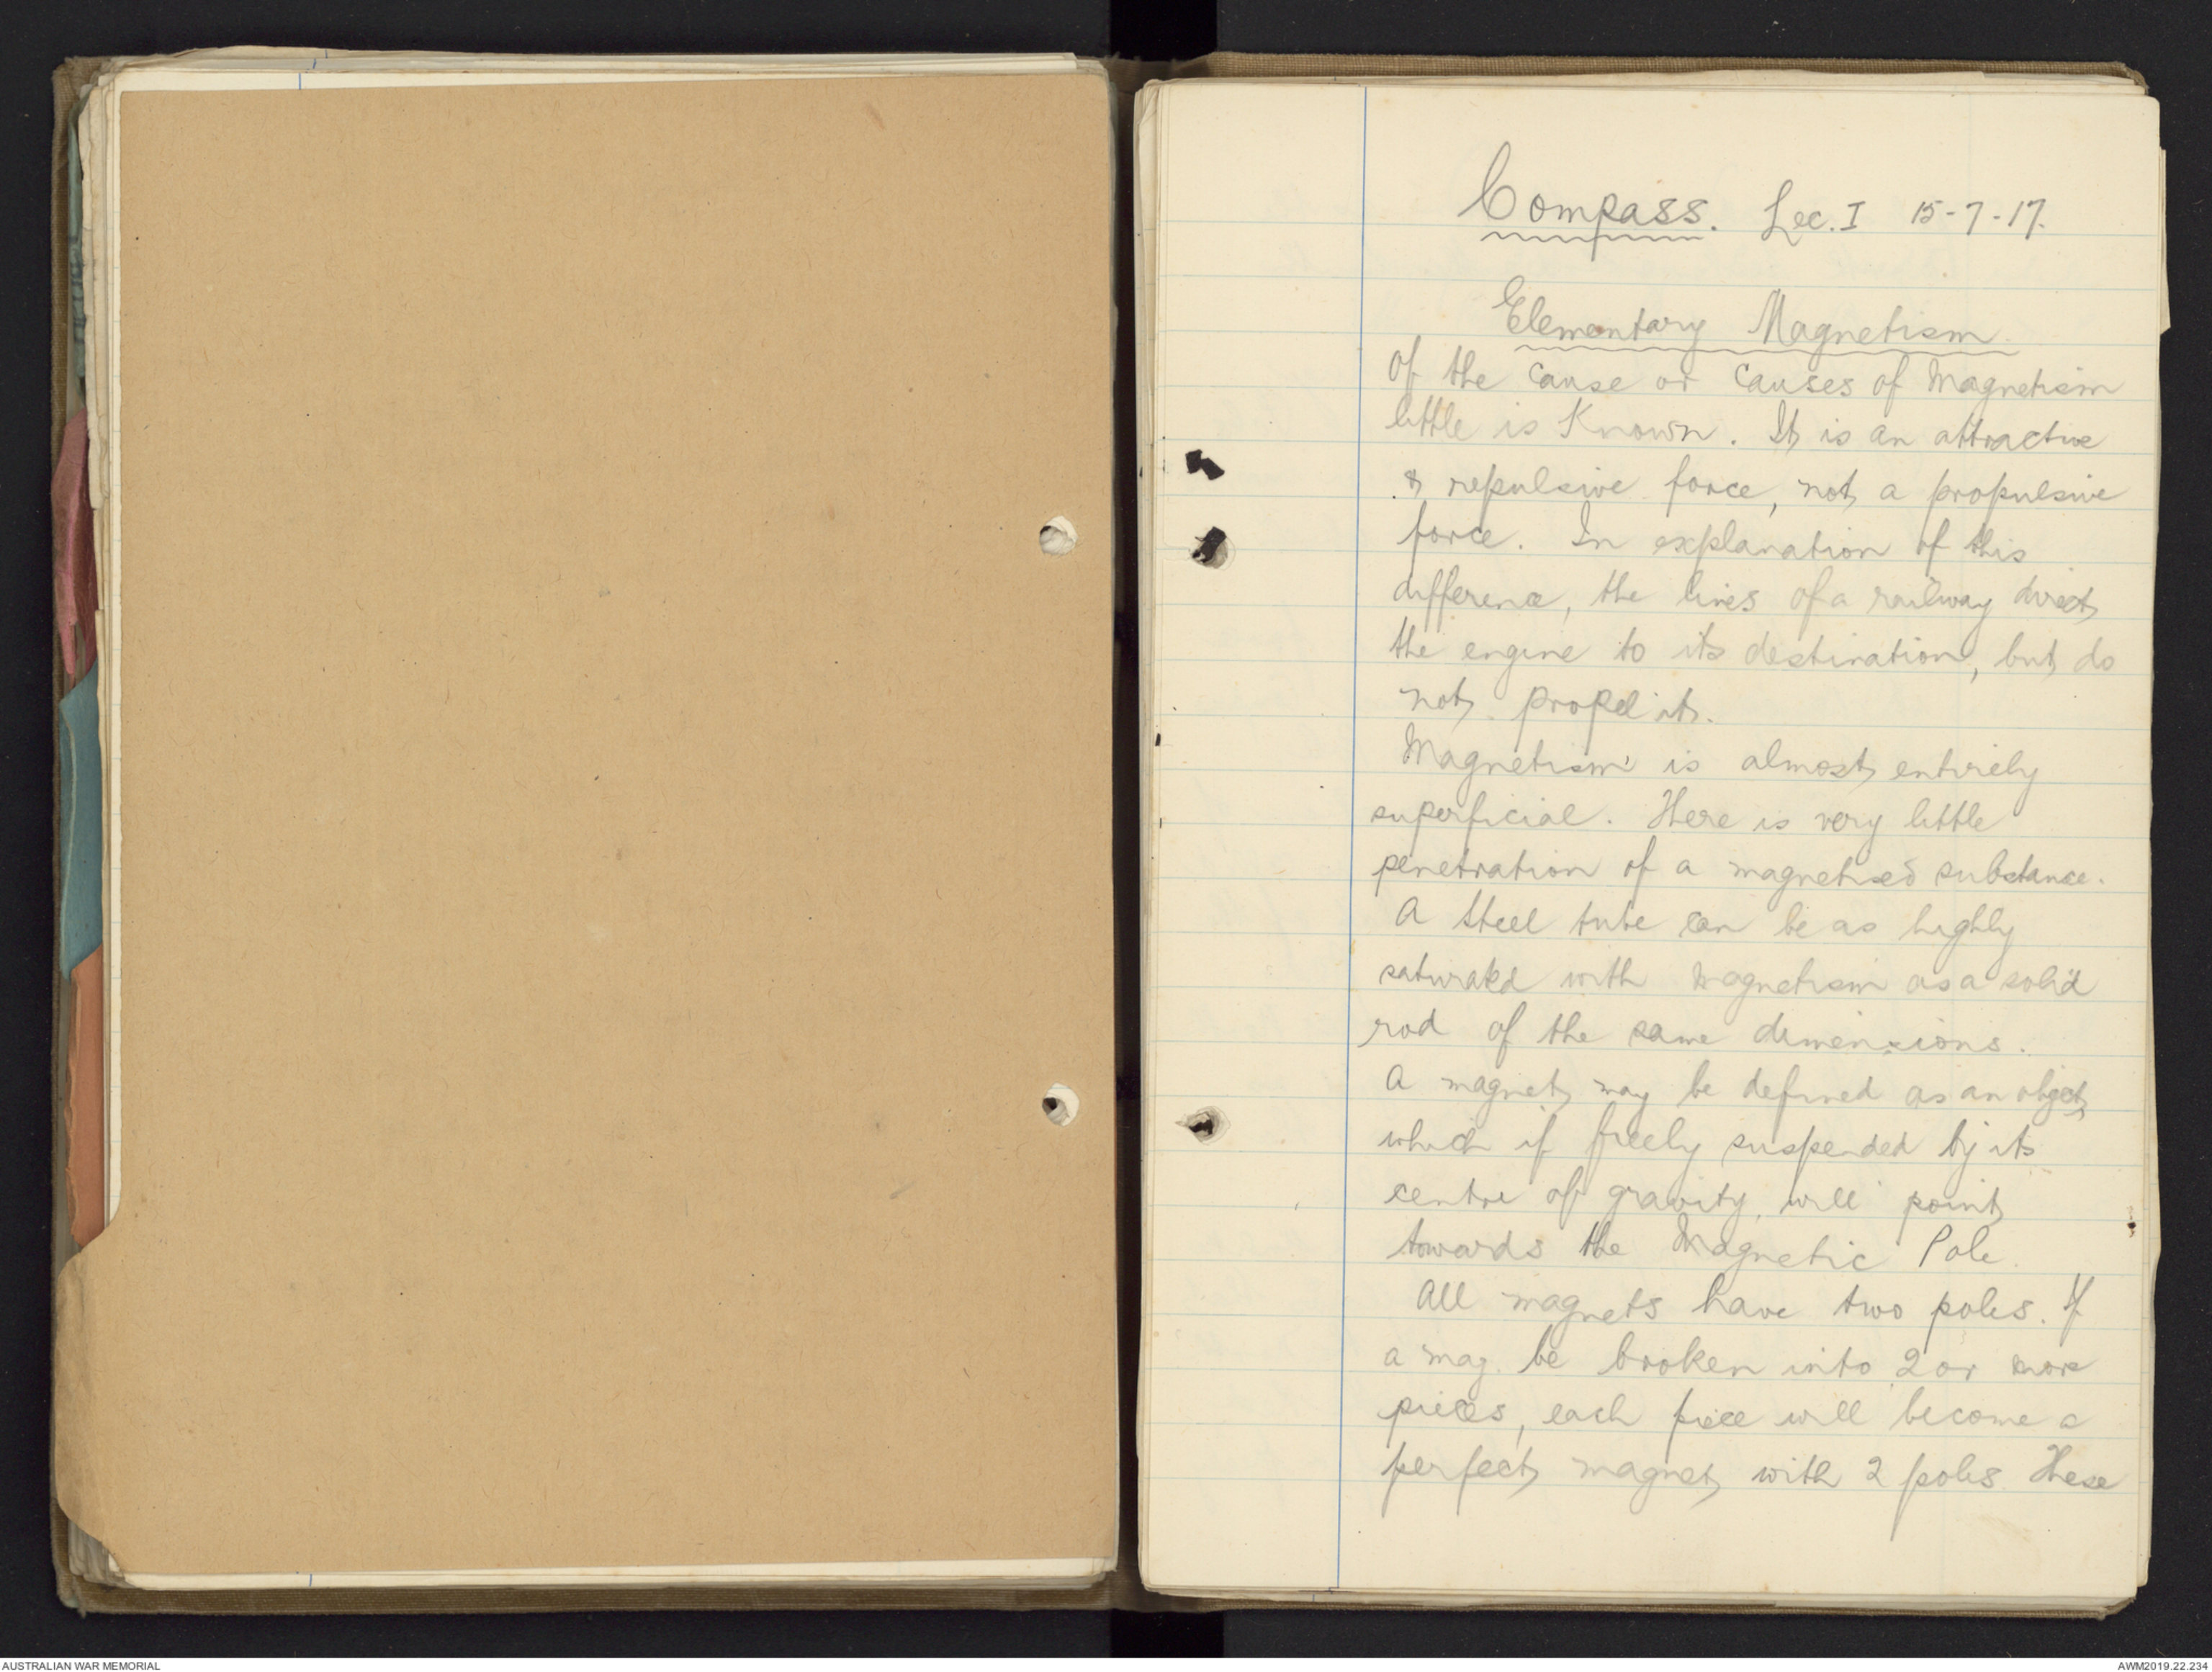 Compass. Lec. I 15-7-17.
Elementary Magnetism.
Of the cause or causes of Magnetism
little is Known. It is an attractive
& repulsive force, not a propulsive
force. In explanation of this
difference, the lines of a railway direct
the engine to its destination, but do
not propel it.
Magnetism is almost entirely
superficial. There is very little
penetration of a magnetised substance.
A steel tube can be as highly
saturated with magnetism as a solid
rod of the same dimensions.
A magnet may be defined as an object
which if freely suspended by its
centre of gravity, will point
towards the Magnetic Pole.
All magnets have two poles. If
a mag. be broken into 2 or more
pieces, each piece will become a
perfect magnet with 2 poles. These
AUSTRALIAN WAR MEMORIAL
AWM2019.22.234